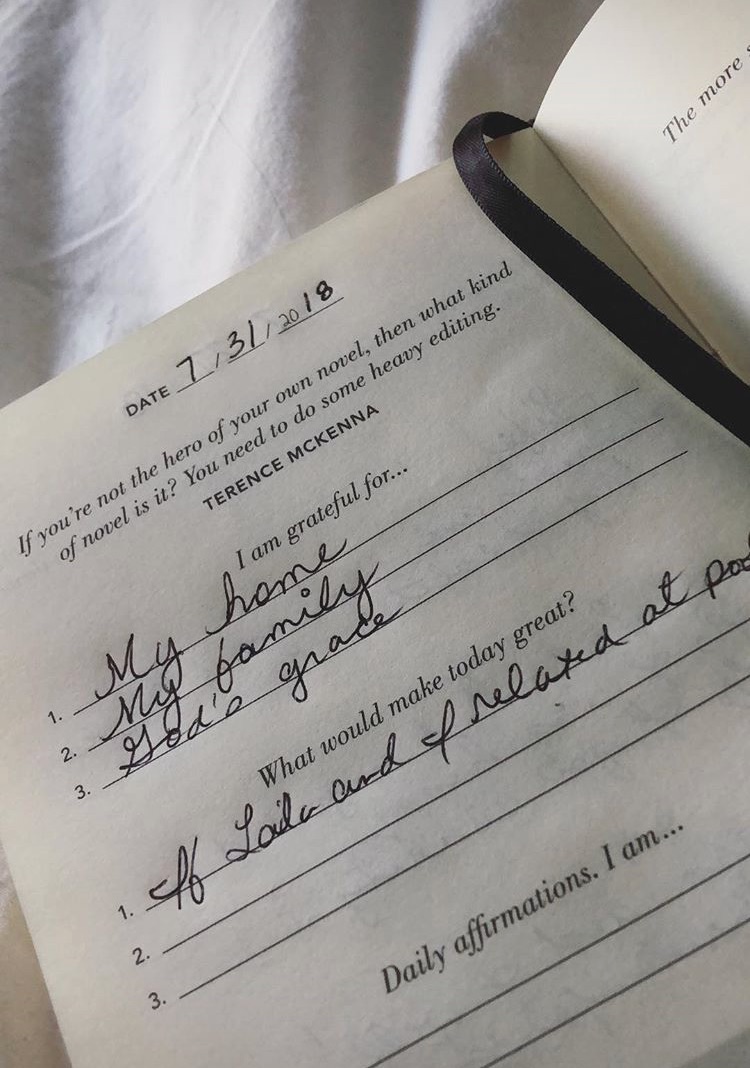 The more
DATE 7/31/2018
If you're not the hero of your own novel, then what kind
of novel is it? You need to do some heavy editing.
TERENCE MCKENNA
I am grateful for...
1. My home
2. My family
3. God's grace
What would make today great?
1. If Laila and I relaxed at
2.
3.
Daily affirmations. I am...